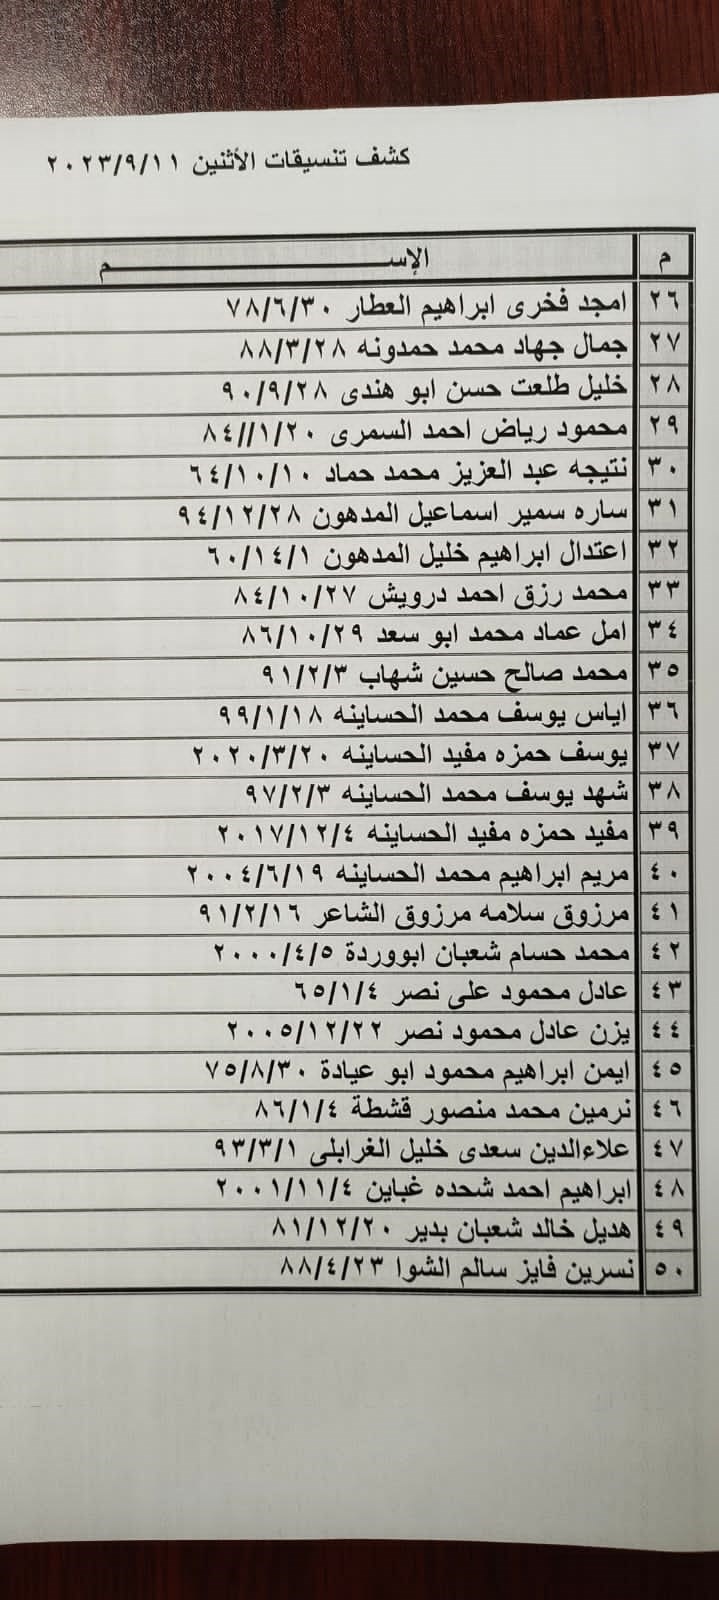 كشف تنسيقات الأثنين ٢٠٢٣/٩/١١
م الإســـــــــــــــــــم
٢٦ امجد فخرى ابراهيم العطار ٧٨/٦/٣٠
٢٧ جمال جهاد محمد حمدونه ٨٨/٣/٢٨
٢٨ خليل طلعت حسن ابو هندى ٩٠/٩/٢٨
٢٩ محمود رياض احمد السمرى ٨٤//١/٢٠
٣٠ نتيجه عبد العزيز محمد حماد ٦٤/١٠/١٠
٣١ ساره سمير اسماعيل المدهون ٩٤/١٢/٢٨
٣٢ اعتدال ابراهيم خليل المدهون ٦٠/١٤/١
٣٣ محمد رزق احمد درويش ٨٤/١٠/٢٧
٣٤ امل عماد محمد ابو سعد ٨٦/١٠/٢٩
٣٥ محمد صالح حسين شهاب ٩١/٢/٣
٣٦ اياس يوسف محمد الحساينه ٩٩/١/١٨
٣٧ يوسف حمزه مفيد الحساينه ٢٠٢٠/٣/٢٠
٣٨ شهد يوسف محمد الحساينه ٩٧/٢/٣
٣٩ مفيد حمزه مفيد الحساينه ٢٠١٧/١٢/٤
٤٠ مريم ابراهيم محمد الحساينه ٢٠٠٤/٦/١٩
٤١ مرزوق سلامه مرزوق الشاعر ٩١/٢/١٦
٤٢ محمد حسام شعبان ابووردة ٢٠٠٠/٤/٥
٤٣ عادل محمود على نصر ٦٥/١/٤
٤٤ يزن عادل محمود نصر ٢٠٠٥/١٢/٢٢
٤٥ ايمن ابراهيم محمود ابو عيادة ٧٥/٨/٣٠
٤٦ نرمين محمد منصور قشطة ٨٦/١/٤
٤٧ علاءالدين سعدى خليل الغرابلى ٩٣/٣/١
٤٨ ابراهيم احمد شحده غباين ٢٠٠١/١١/٤
٤٩ هديل خالد شعبان بدير ٨١/١٢/٢٠
٥٠ نسرين فايز سالم الشوا ٨٨/٤/٢٣